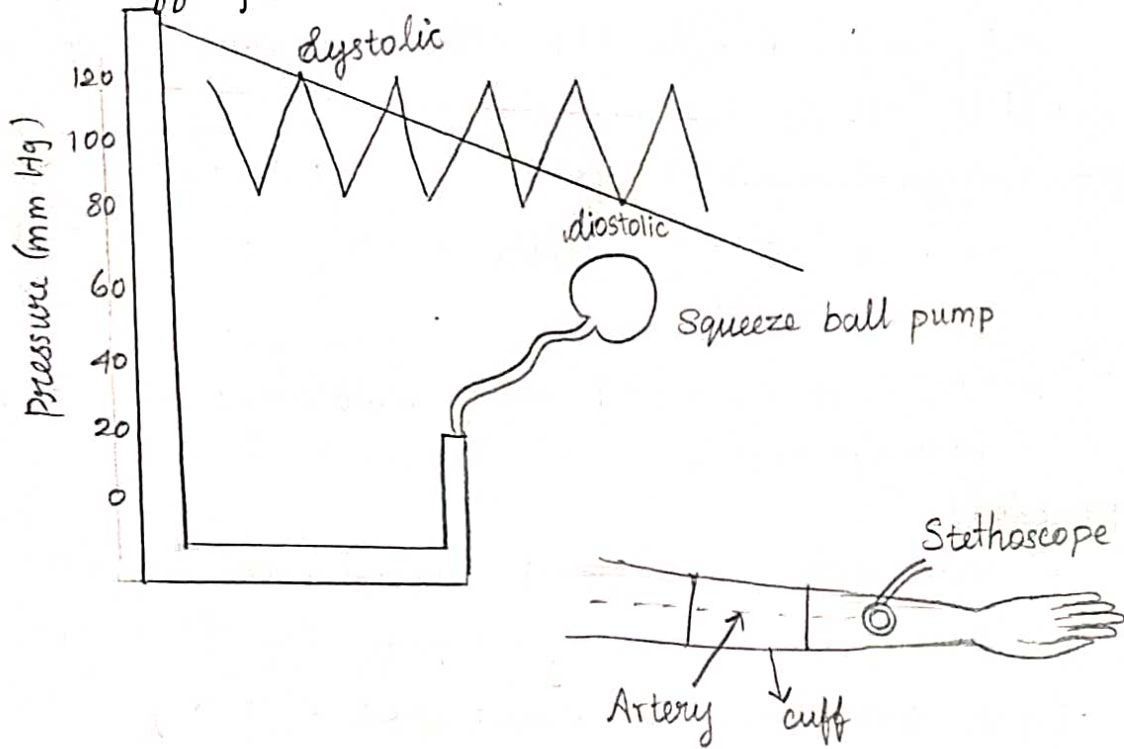 Systolic
120
100
80
60
40
20
0
Pressure (mm Hg)
diostolic
Squeeze ball pump
Stethoscope
Artery
cuff